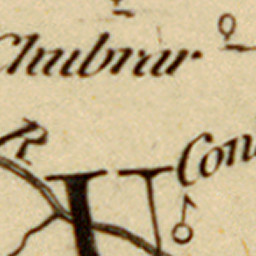 Chubrar
R
Con
N